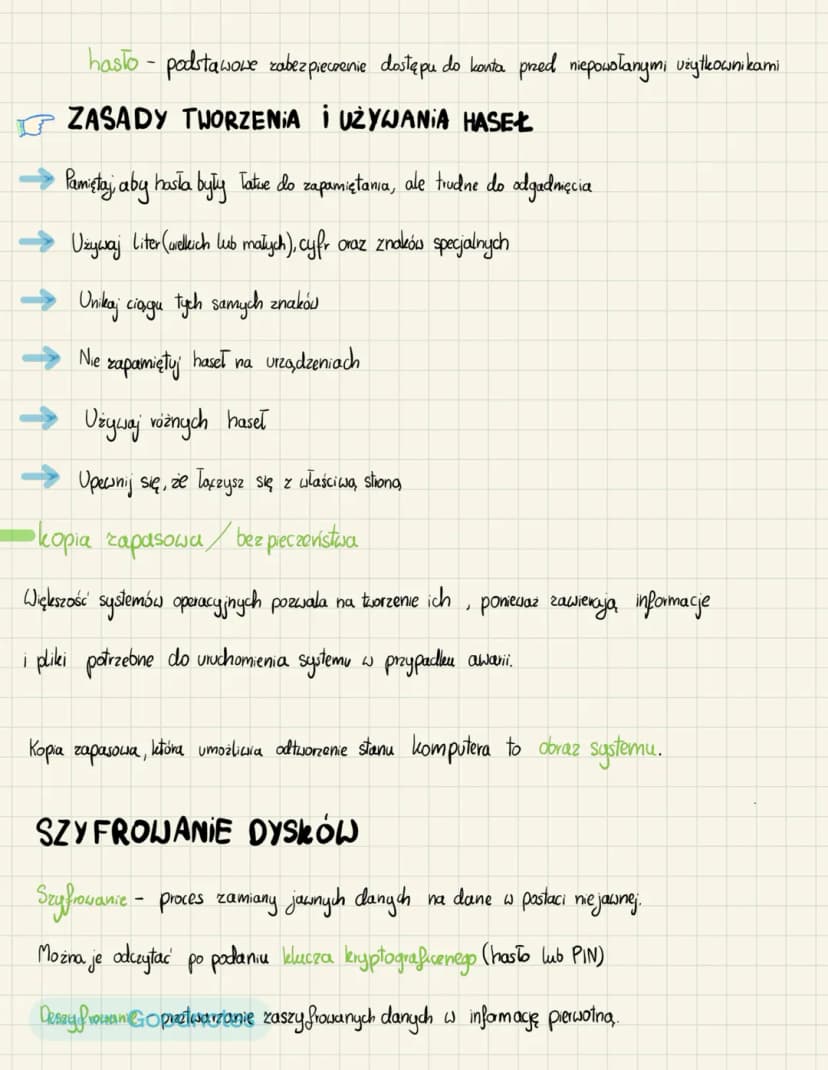 hasło - podstawowe zabezpieczenie dostępu do konta przed niepowołanymi użytkownikami
ZASADY TWORZENIA i UŻYWANIA HASEŁ
Pamiętaj, aby hasła były łatwe do zapamiętania, ale trudne do odgadnięcia
Używaj liter (wielkich lub małych), cyfr oraz znaków specjalnych
Unikaj ciągu tych samych znaków
Nie zapamiętuj haseł na urządzeniach
Używaj różnych haseł
Upewnij się, że łączysz się z właściwą stroną
kopia zapasowa / bezpieczeństwa
Większość systemów operacyjnych pozwala na tworzenie ich, ponieważ zawierają informacje
i pliki potrzebne do uruchomienia systemu w przypadku awarii.
Kopia zapasowa, która umożliwia odtworzenie stanu komputera to obraz systemu.
SZYFROWANIE DYSKÓW
Szyfrowanie - proces zamiany jawnych danych na dane w postaci niejawnej.
Można je odczytać po podaniu klucza kryptograficznego (hasło lub PIN)
Deszyfrowanie - przetwarzanie zaszyfrowanych danych w informację pierwotną.
Goodnotes